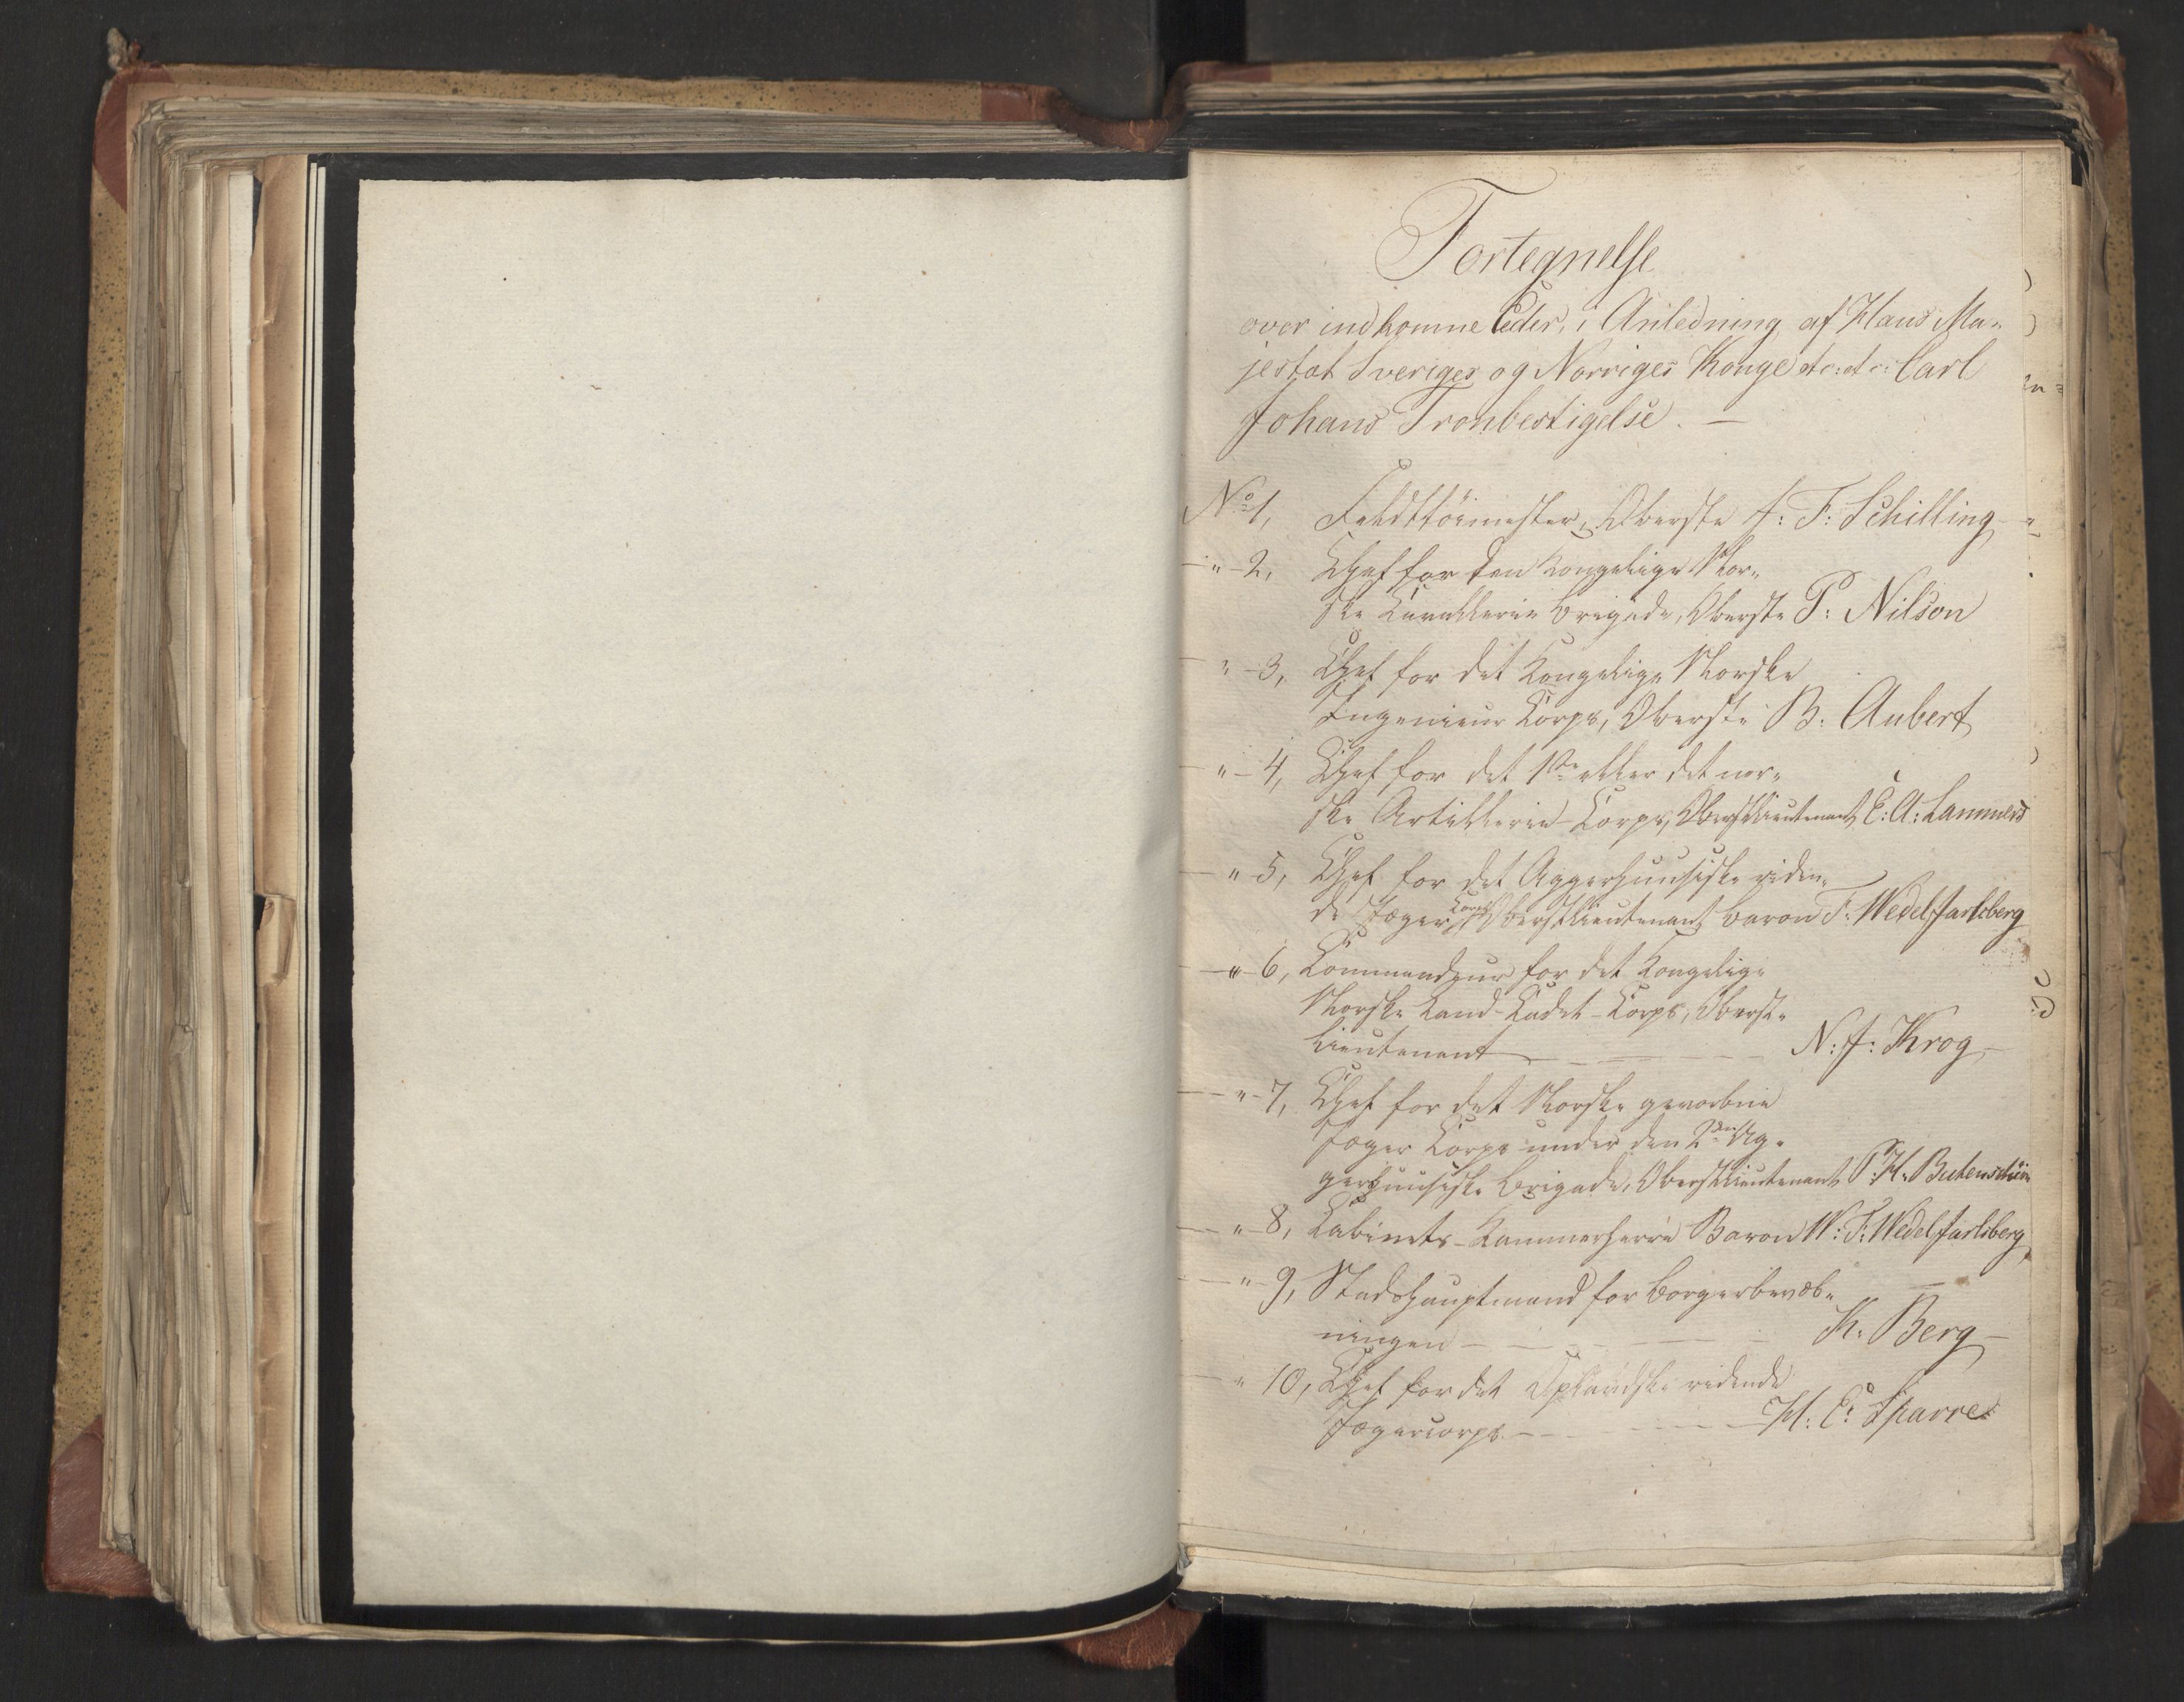 Fortegnelse
over indkomne Eder, i Anledning af Hans Ma„
jestæt Sveriges og Norriges Konge etc: etc: Carl
Johans Tronbestigelse. —
No 1, Feldttöimester, Oberste J: F: Schilling
— „ — 2, Chef for den Kongelige Nor„
ske Cavallerie Brigade, Oberste P: Nilson
— „ — 3, Chef for det Kongelige Norske
Ingenieur Corps, Oberste B: Aubert
— „ — 4, Chef for det 1ste eller det nor„
ske Artillerie Corps, Oberstlieutenant E: A: Lammers
— „ 5, Chef for det Aggerhuusiske riden„
de Jæger Corps Oberstlieutenant Baron F: Wedel Jarlsberg
— „ — 6, Commandeur for det Kongelige
Norske Land-Cadet-Corps, Oberst„
lieutenant — — — N: J: Krog —
— „ — 7, Chef for det Norske gevorbne
Jæger Corps under den 2den Ag„
gerhuusiske Brigade, Oberstlieutenant P: H: Butenschön
— „ — 8, Cabinets-Kammerherre Baron W: F: Wedel Jarlsberg
— „ — 9, Stadshauptmand for Borgerbevæb„
ningen — — — K: Berg —
— „ 10, Chef for det Oplandske ridende
Jægercorps. — — — H: C: Sparre